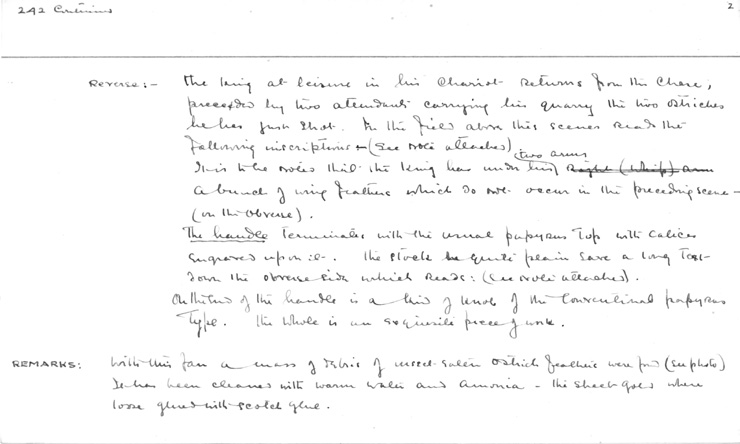 242 Continued
2
Reverse:- The king at leisure in his Chariot returns from the Chase,
preceded by two attendants carrying his quarry the two ostriches
he has just shot. In the field above this scenes reads the
following inscription - (see note attached)
It is to be noted that the King has under his two arms Right (whip) arm
a bunch of wing feathers which do not occur in the preceding scene -
(on the obverse).
The handle terminates with the usual papyrus top with calices
engraved upon it. The stock be quite plain save a long text
down the obverse side which reads: (see note attached).
On the end of the handle is a kind of knob of the conventional papyrus
type. The whole is an exquisite piece of work.
REMARKS: With this fan a mass of debris of insect-eaten ostrich feathers were (see photo)
It has been cleaned with warm water and amonia - the sheet gold where
loose glued with scotch glue.